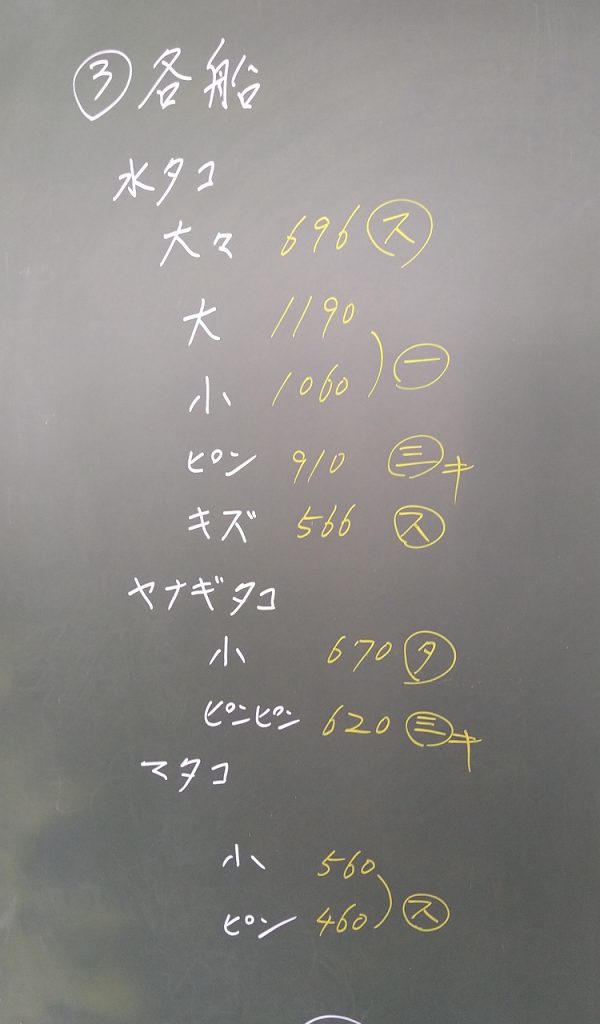 ③各船
水タコ
大々 696 ㋜
大 1190
小 1060 ) ㊀
ピン 910 ㊂キ
キズ 566 ㋜
ヤナギタコ
小 670 ㋟
ピンピン 620 ㊂キ
マタコ
小 560
ピン 460 ) ㋜